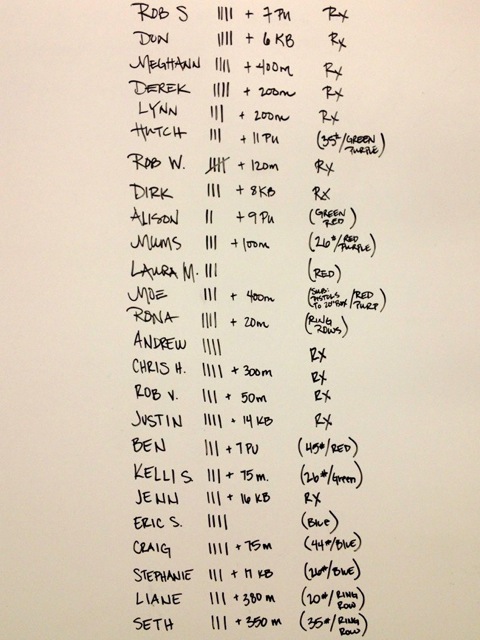 ROB S |||| + 7 PU Rx
DON |||| + 6 KB Rx
MEGHANN |||| + 400m Rx
DEREK |||| + 200m Rx
LYNN ||| + 200m Rx
HUTCH ||| + 11 PU (35#/GREEN PURPLE)
ROB W. |||| + 120m Rx
DIRK ||| + 8 KB Rx
ALISON || + 9 PU (GREEN RED)
MUMS ||| + 100m (26#/RED PURPLE)
LAURA M. ||| (RED)
MOE ||| + 400m (SUB: PISTOLS TO 20" BOX/RED PURP)
RONA |||| + 20m (RING ROWS)
ANDREW |||| Rx
CHRIS H. |||| + 300m Rx
ROB V. ||| + 50m Rx
JUSTIN |||| + 14 KB Rx
BEN ||| + 7 PU (45#/RED)
KELLI S. ||| + 75m. (26#/Green)
JENN ||| + 16 KB Rx
ERIC S. |||| (BLUE)
CRAIG |||| + 75m (44#/BLUE)
STEPHANIE ||| + 17 KB (26#/BLUE)
LIANE ||| + 380m (20#/RING ROW)
SETH ||| + 350m (35#/RING ROW)